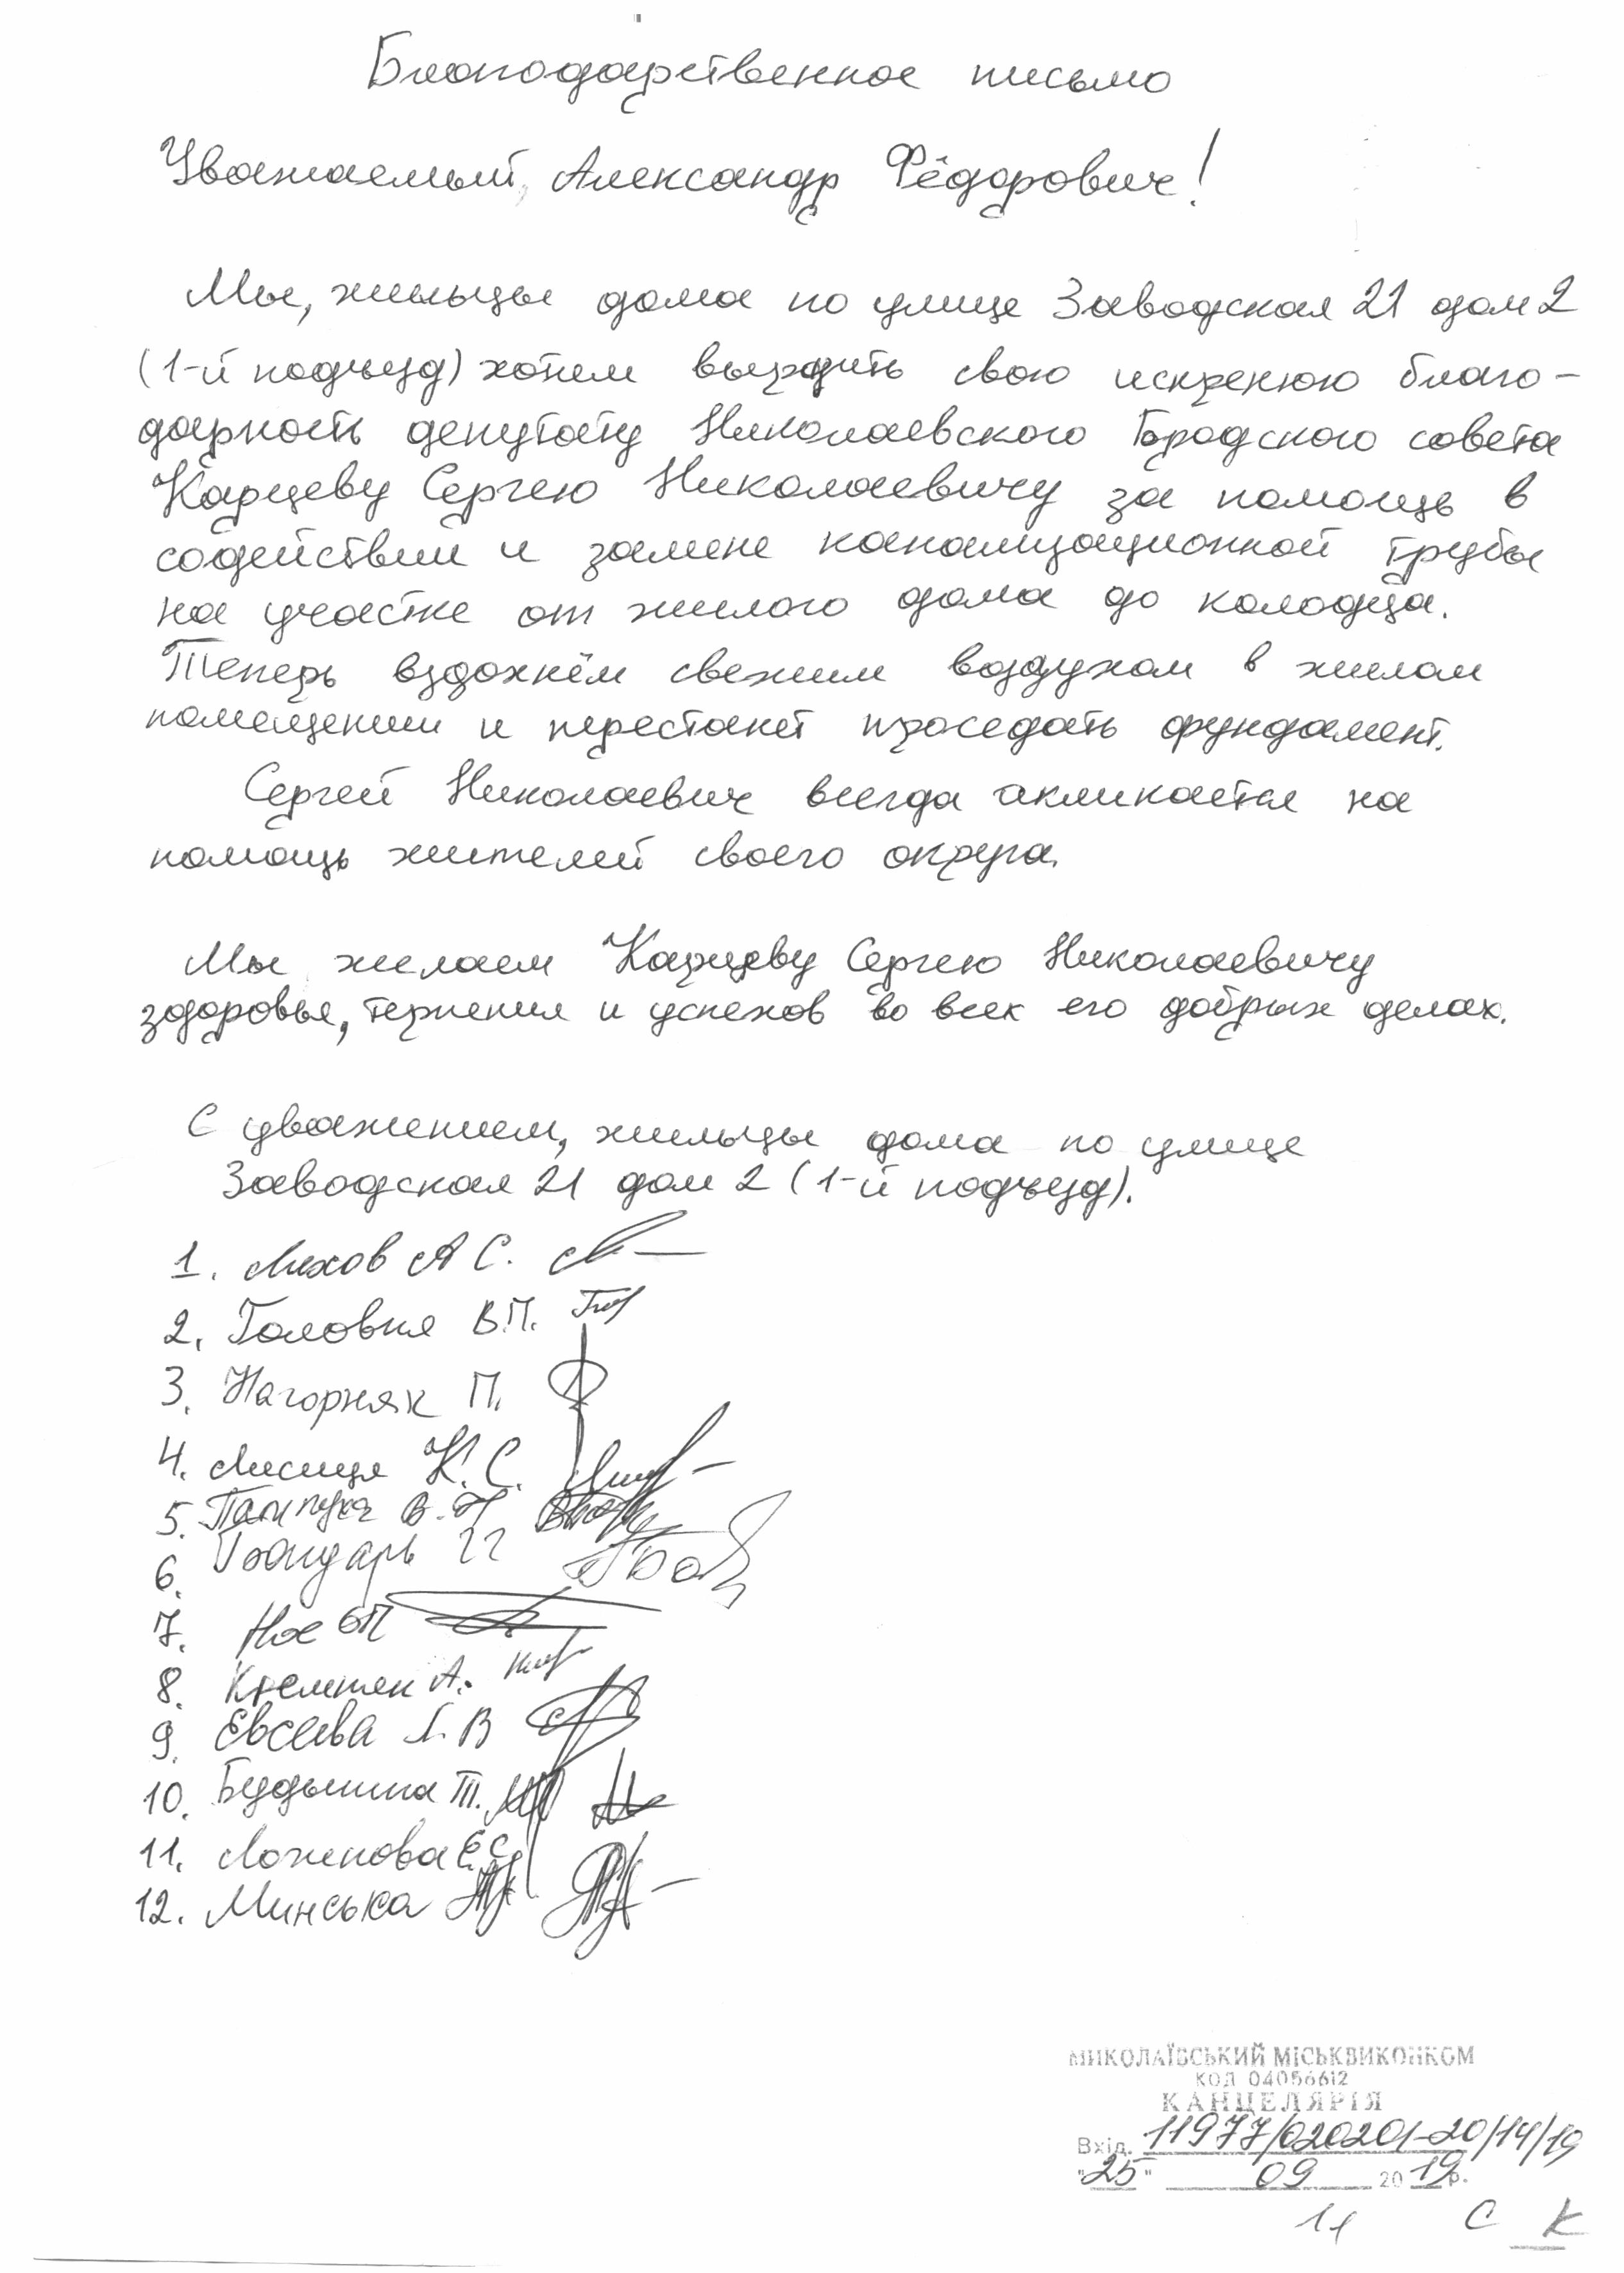 Благодарственное письмо
Уважаемый, Александр Фёдорович!
Мы, жильцы дома по улице Заводская 21 дом 2
(1-й подъезд) хотим выразить свою искренюю благо-
дарность депутату Николаевского Городского совета
Карцеву Сергею Николаевичу за помощь в
содействии и замене канализационной трубы
на участке от жилого дома до колодца.
Теперь вздохнём свежим воздухом в жилом
помещении и перестанет проседать фундамент.
Сергей Николаевич всегда акликается на
помощь жителей своего округа.
Мы желаем Карцеву Сергею Николаевичу
здоровья, терпения и успехов во всех его добрых делах.
С уважением, жильцы дома по улице
Заводская 21 дом 2 (1-й подъезд).
1. Ляхов А С.
2. Головня В.П.
3. Нагорняк П.
4. Лисиця К. С.
5.
6. Бондарь
7.
8. А.
9. Евсеева В
10. Т.
11. Е.С.
12. Минська
МИКОЛАЇВСЬКИЙ МІСЬКВИКОНКОМ
КОД 04056612
КАНЦЕЛЯРІЯ
Вхід. 11977/020201-20/14/19
"25" 09 2019р.
11 С К